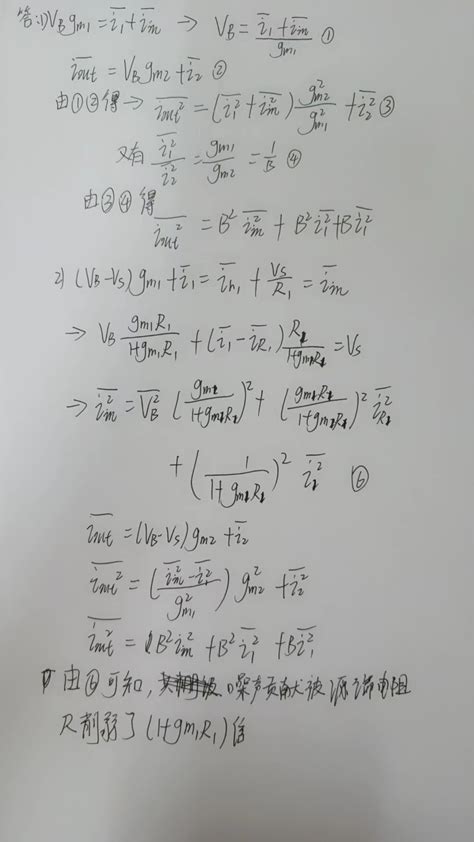 答:1) V_B g_m1 = \overline{i_1} + \overline{i_in} → V_B = \frac{\overline{i_1} + \overline{i_in}}{g_m1} ①
\overline{i_out} = V_B g_m2 + \overline{i_2} ②
由①②得→ \overline{i_out^2} = (\overline{i_1^2} + \overline{i_in^2}) \frac{g_m2^2}{g_m1^2} + \overline{i_2^2} ③
又有 \frac{\overline{i_1^2}}{\overline{i_2^2}} = \frac{g_m1}{g_m2} = \frac{1}{B} ④
由③④得
\overline{i_out^2} = B^2 \overline{i_in^2} + B^2 \overline{i_1^2} + B \overline{i_1^2}
2) (V_B - V_S) g_m1 + \overline{i_1} = \overline{i_R1} + \frac{V_S}{R_1} = \overline{i_in}
→ V_B \frac{g_m1 R_1}{1+g_m1 R_1} + (\overline{i_1} - \overline{i_R1}) \frac{R_1}{1+g_m1 R_1} = V_S
→ \overline{i_in^2} = \overline{V_B^2} (\frac{g_m1}{1+g_m1 R_1})^2 + (\frac{g_m1 R_1}{1+g_m1 R_1})^2 \overline{i_R1^2}
+ (\frac{1}{1+g_m1 R_1})^2 \overline{i_1^2} ⑥
\overline{i_out} = (V_B - V_S) g_m2 + \overline{i_2}
\overline{i_out^2} = (\frac{\overline{i_in^2} - \overline{i_1^2}}{g_m1^2}) g_m2^2 + \overline{i_2^2}
\overline{i_out^2} = B^2 \overline{i_in^2} + B^2 \overline{i_1^2} + B \overline{i_1^2}
由⑥可知, 噪声贡献被源端电阻
R削弱了(1+g_m1 R_1)倍